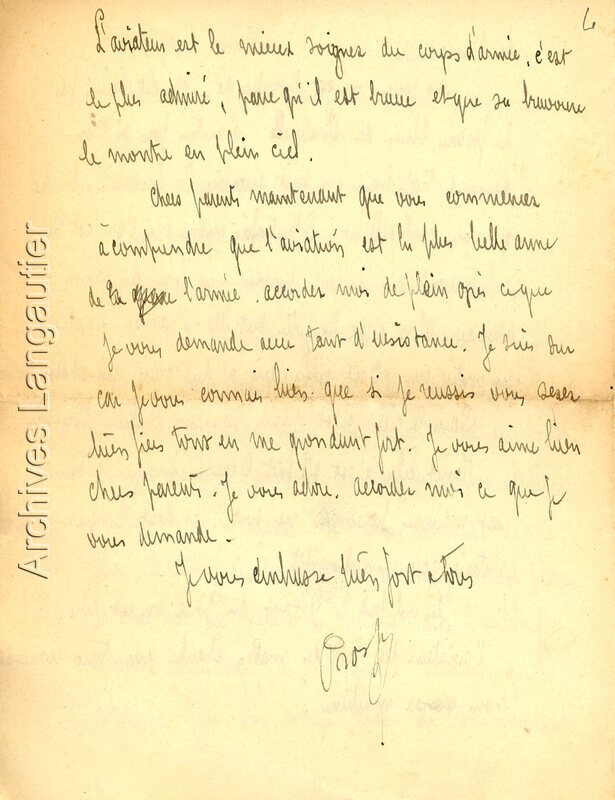 6
L'aviateur est le mieux soigner du corps d'armée, c'est
le plus admiré, parce qu'il est brave et que sa bravoure
le montre en plein ciel.
Chers parents maintenant que vous commencez
à comprendre que l'aviation est la plus belle arme
de l'armée. accorder moi de plein grès ce que
je vous demande avec tant d'insistance. Je suis sur
car je vous connais bien que si je reussis vous serez
bien fiers tout en me grondant fort. Je vous aime bien
chers parents. Je vous adore. accorder moi ce que je
vous demande.
Je vous embrasse bien fort a tous
Archives Langautier